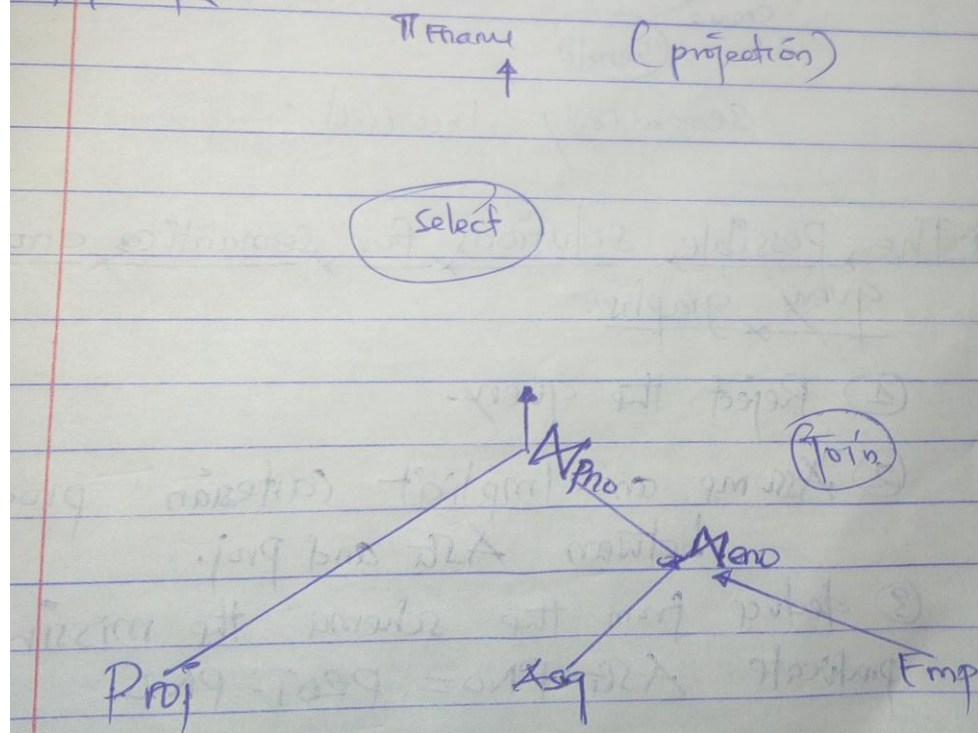 π Ename (projection)
Select
⋈ Pno
Join
⋈ eno
Proj Asg Emp